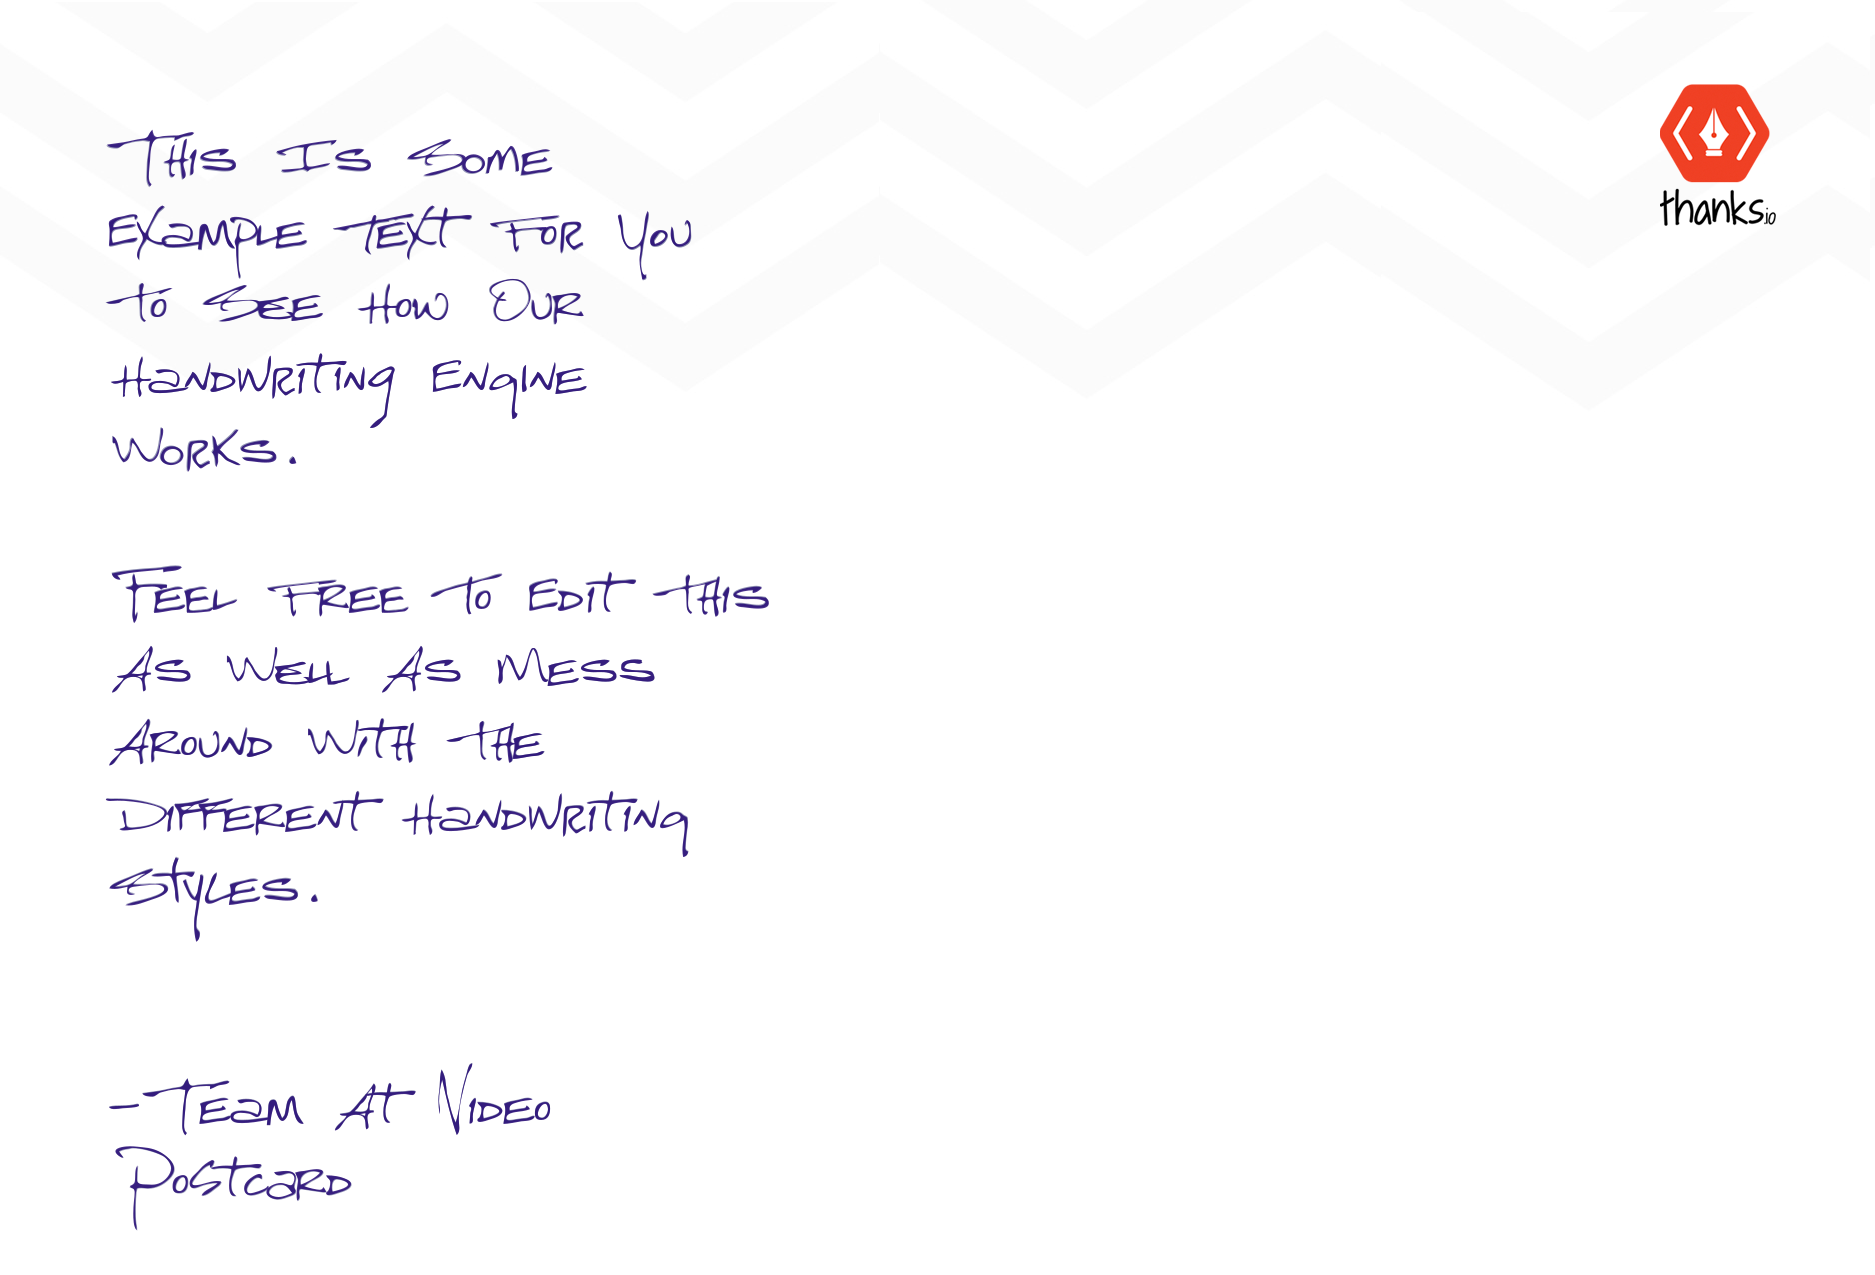 This Is Some
Example Text For You
To See How Our
Handwriting Engine
Works.
Feel Free To Edit This
As Well As Mess
Around With The
Different Handwriting
Styles.
-Team At Video
Postcard
thanks.io